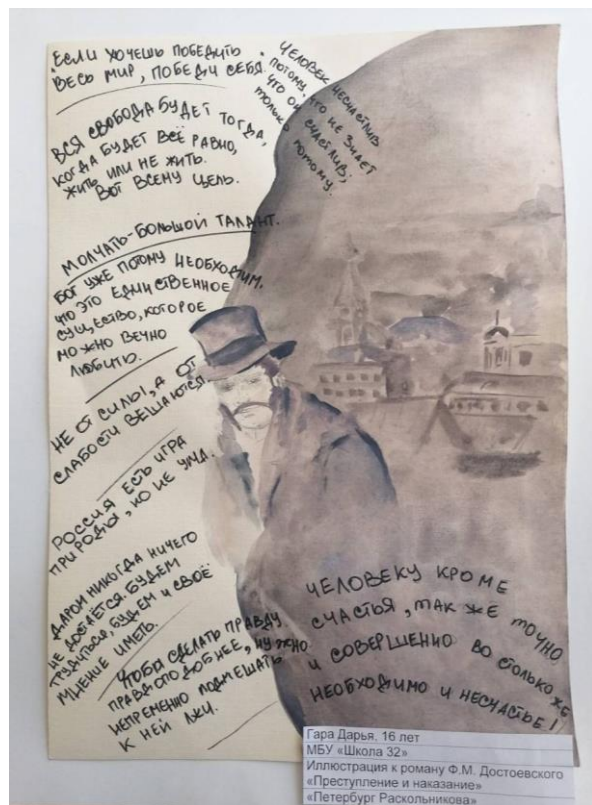 Если хочешь победить
весь мир, победи себя.
Человек несчастлив
потому, что не знает
что он счастлив;
только потому.
Вся свобода будет тогда,
когда будет всё равно,
жить или не жить.
Вот всему цель.
Молчать-большой талант.
Бог уже потому необходим.
что это единственное
существо, которое
можно вечно
любить.
Не от силы, а от
слабости вешаются
Россия есть игра
природы, но не ума.
Даром никогда ничего
не достаётся. Будем
трудиться, будем и своё
мнение иметь.
Чтобы сделать правду
правдоподобнее, нужно
непременно подмешать
к ней лжи.
Человеку кроме
счастья, так же точно
и совершенно во столько же
необходимо и несчастье!
Гара Дарья, 16 лет
МБУ «Школа 32»
Иллюстрация к роману Ф.М. Достоевского
«Преступление и наказание»
«Петербург Раскольникова»